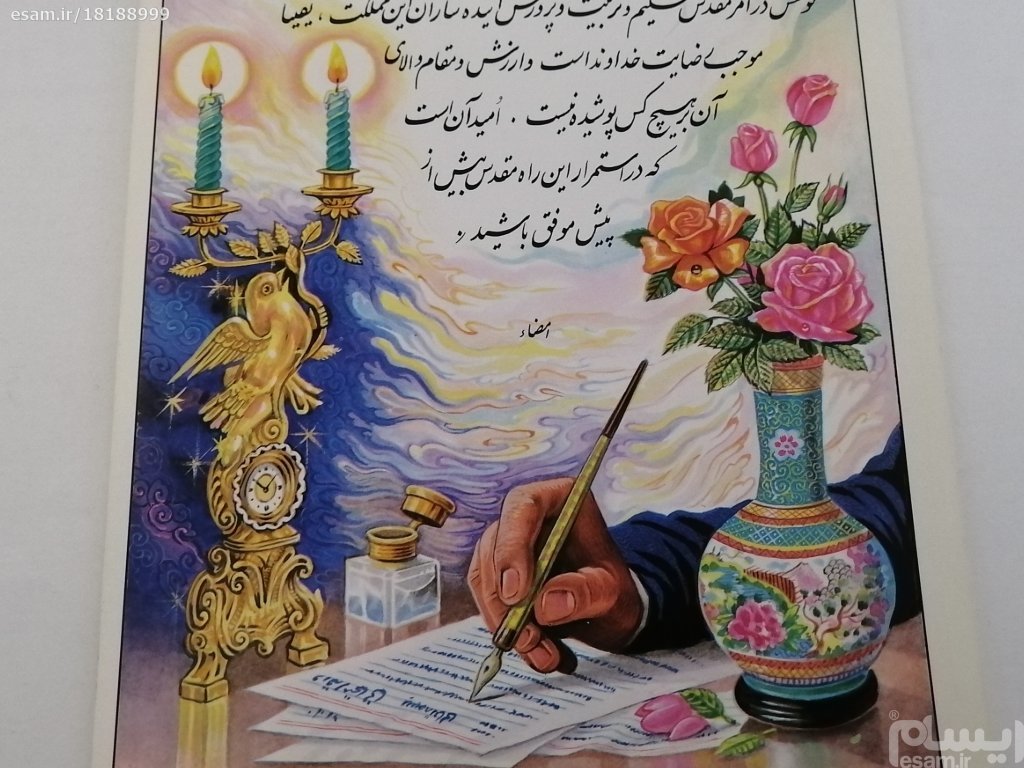 esam.ir/18188999
کوشش در امر مقدس تعلیم و تربیت و پرورش آینده سازان این مملکت ، یقیناً
موجب رضایت خداوند است و ارزش و مقام والای
آن بر هیچ کس پوشیده نیست . اُمید آن است
که در استمرار این راه مقدس بیش از
پیش موفق باشید .
امضاء
ایسام®
esam.ir